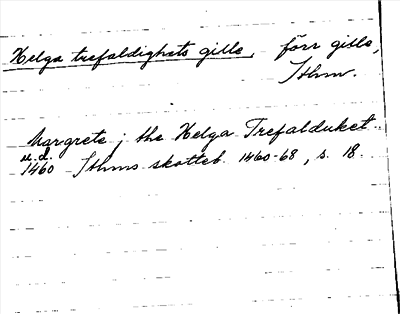 Helga trefaldighets gille, förr gille,
Sthm.
Margrete j the Helga Trefalduket..
u.d.
1460 Sthms skotteb. 1460-68, s. 18.